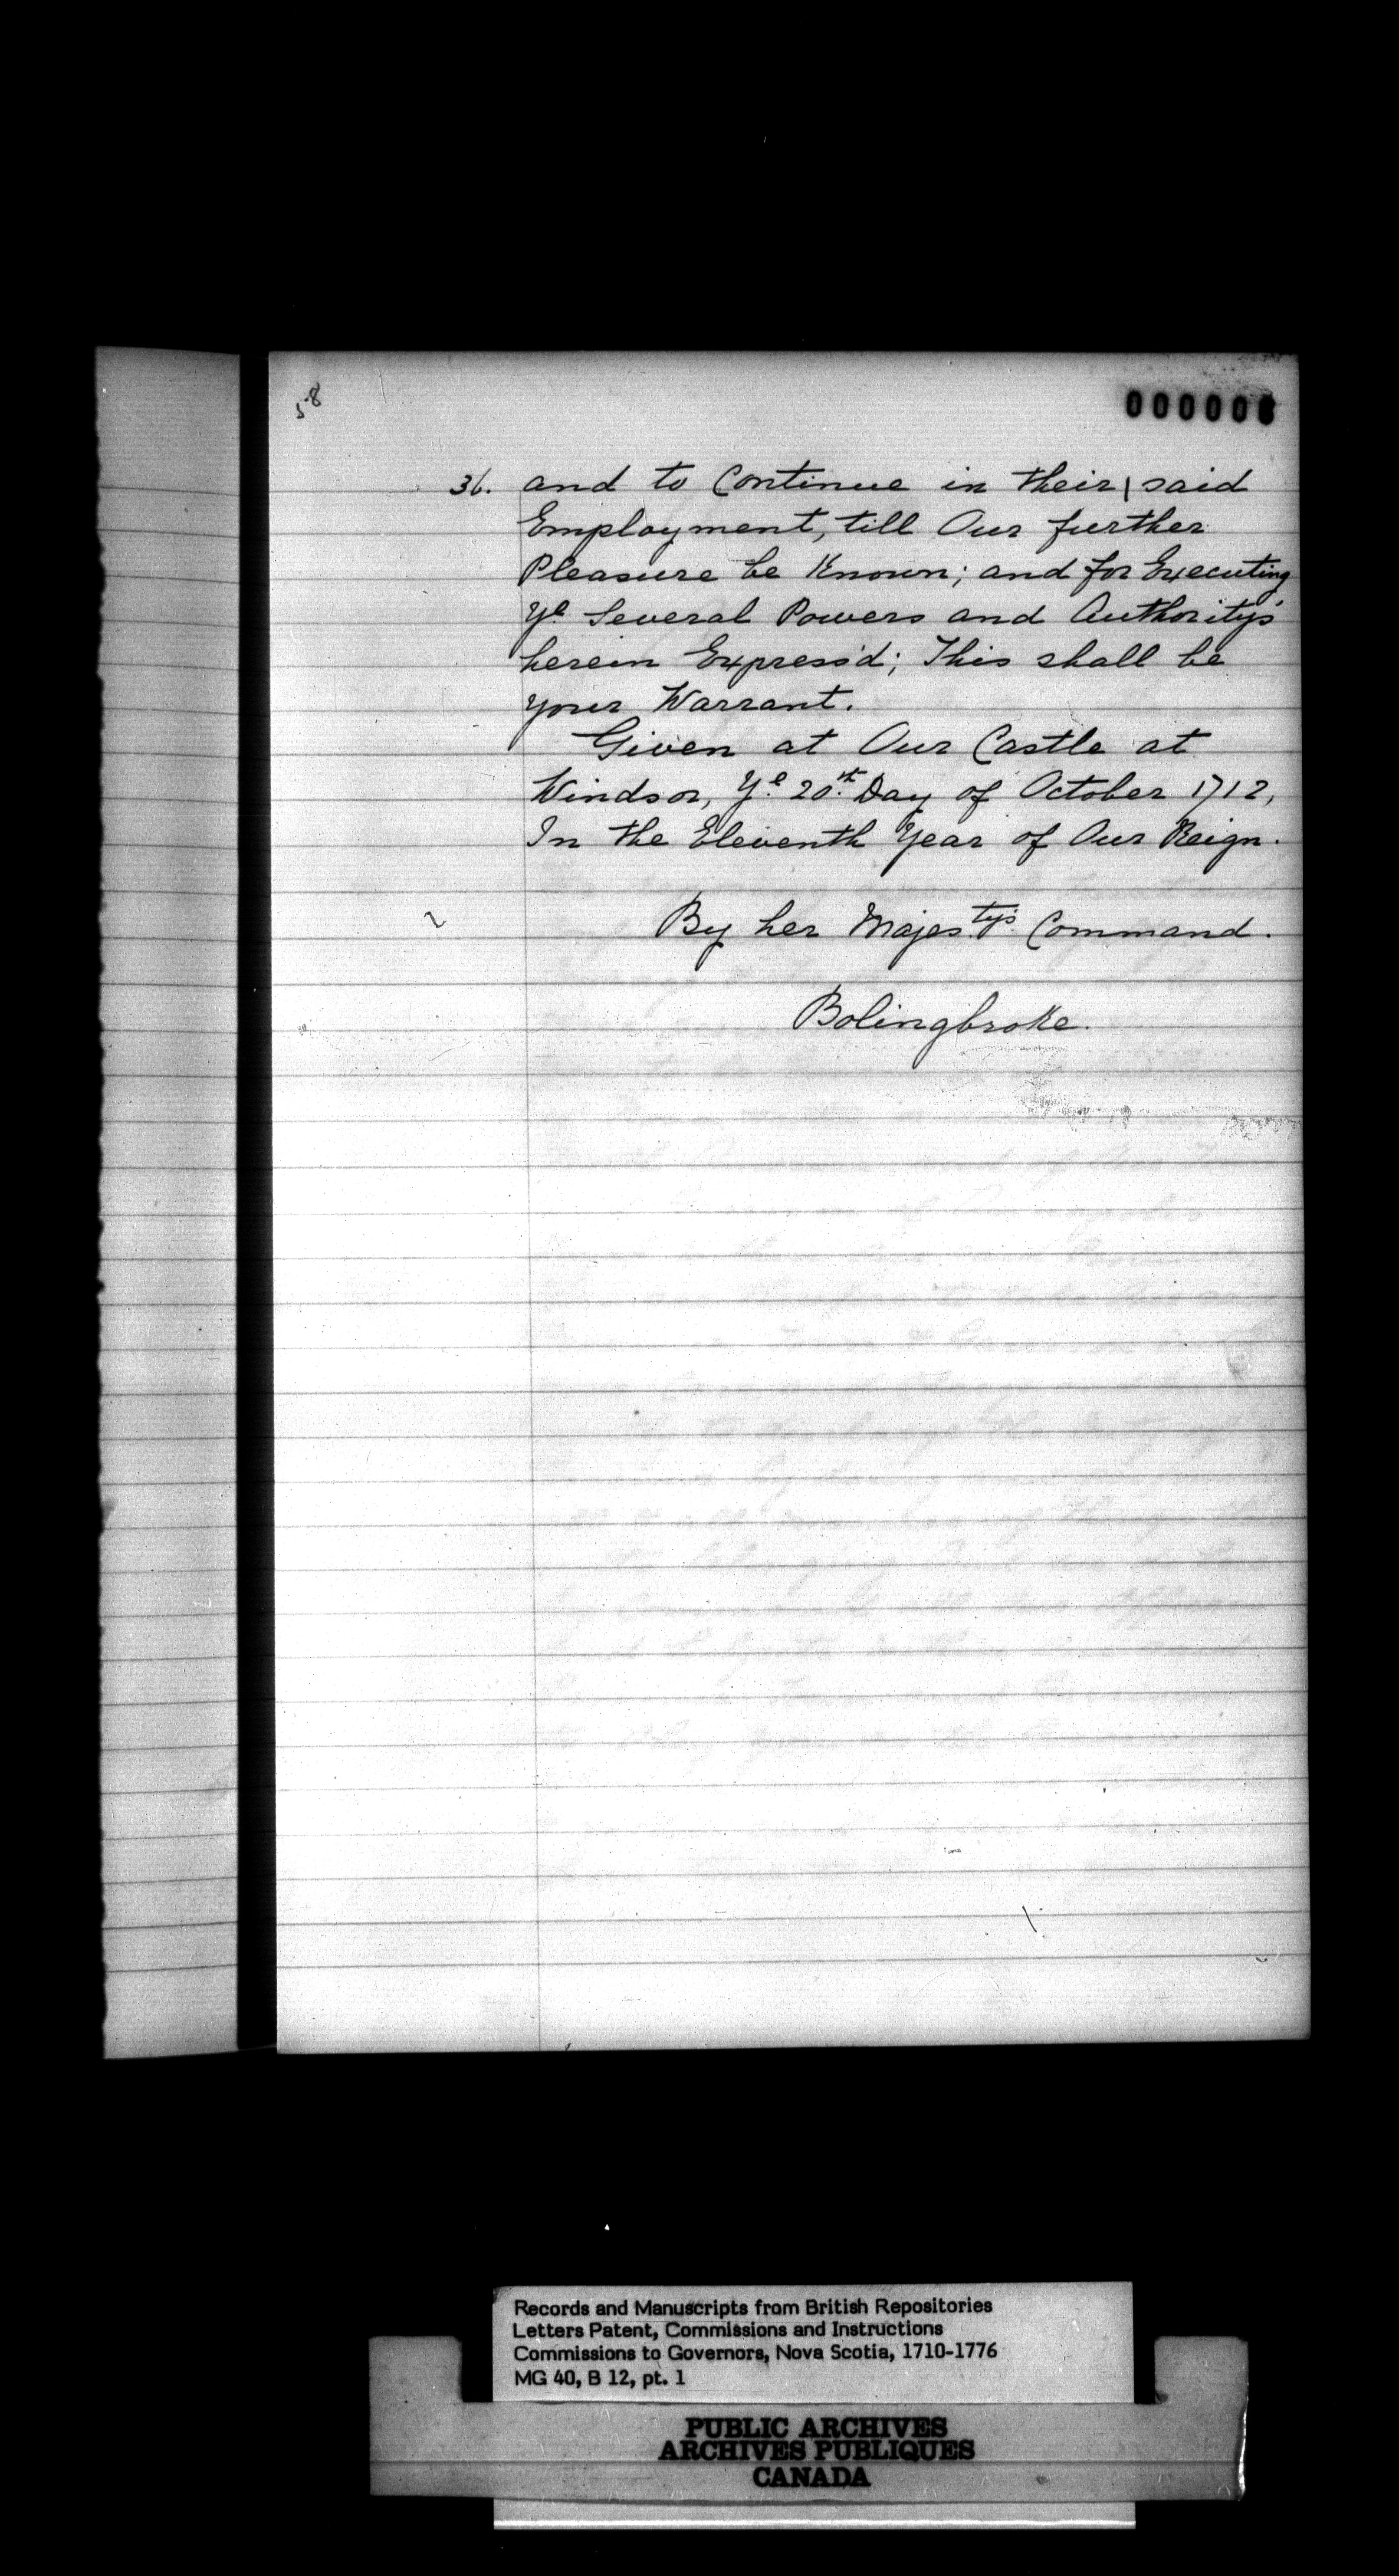 58
000006
36. and to Continue in their | said
Employment, till Our further
Pleasure be Known; and for Executing
Ye Several Powers and Authority's
herein Express'd; This shall be
your Warrant.
Given at Our Castle at
Windsor, Ye 20th Day of October 1712,
In the Eleventh Year of Our Reign.
By her Majestys Command.
Bolingbroke.
Records and Manuscripts from British Repositories
Letters Patent, Commissions and Instructions
Commissions to Governors, Nova Scotia, 1710-1776
MG 40, B 12, pt. 1
PUBLIC ARCHIVES
ARCHIVES PUBLIQUES
CANADA